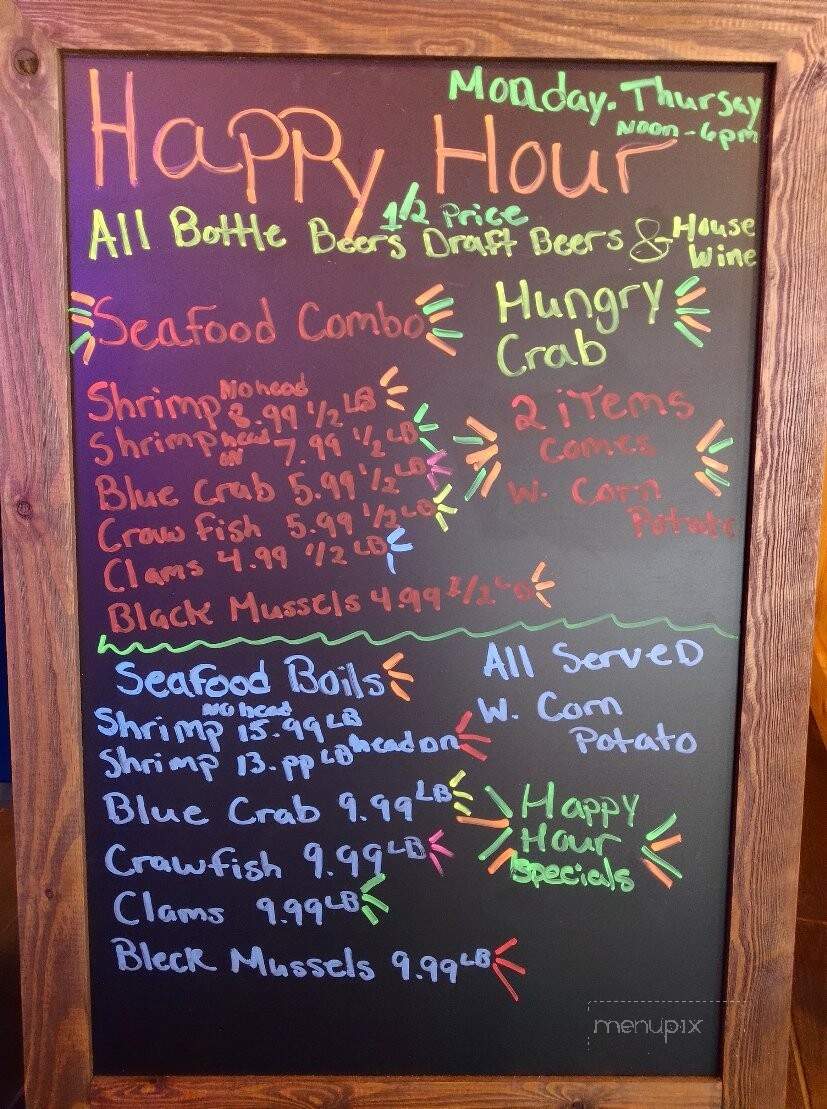 Monday. Thursay
Noon - 6pm
Happy Hour
1/2 Price
All Bottle Beers Draft Beers & House Wine
Seafood Combo
Hungry
Crab
Shrimp No head 8.99 1/2 LB
Shrimp head on 7.99 1/2 LB
Blue Crab 5.99 1/2 LB
Craw fish 5.99 1/2 LB
Clams 4.99 1/2 LB
Black Mussels 4.99 1/2 LB
2 iTems
comes
w. Corn
Potato
Seafood Boils
Shrimp No head 15.99 LB
Shrimp 13.pp LB head on
Blue Crab 9.99 LB
Crawfish 9.99 LB
Clams 9.99 LB
Bleck Mussels 9.99 LB
All Served
W. Corn
Potato
Happy
Hour
Specials
menupix